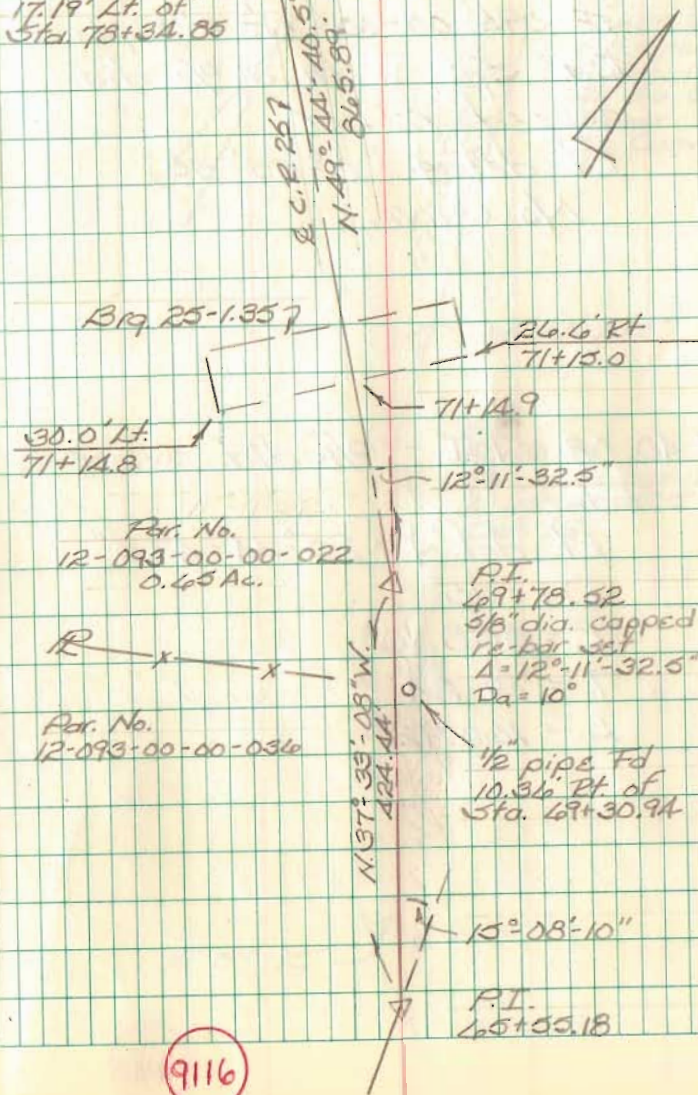 17.19' Lt. of
Sta. 78+34.85
℄ C.R. 257
N. 49°-44'-40.5
865.89'
Brg. 25-1.357
26.6' Rt
71+15.0
71+14.9
30.0' Lt.
71+14.8
12°-11'-32.5"
Par. No.
12-093-00-00-022
0.65 Ac.
P.I.
69+78.52
5/8" dia. capped
re-bar set
Δ = 12°-11'-32.5"
Da = 10°
N. 37°-33'-08" W.
424.44'
Par. No.
12-093-00-00-036
1/2" pipe Fd
10.36' Rt. of
Sta. 69+30.94
15°-08'-10"
P.I.
65+55.18
9116